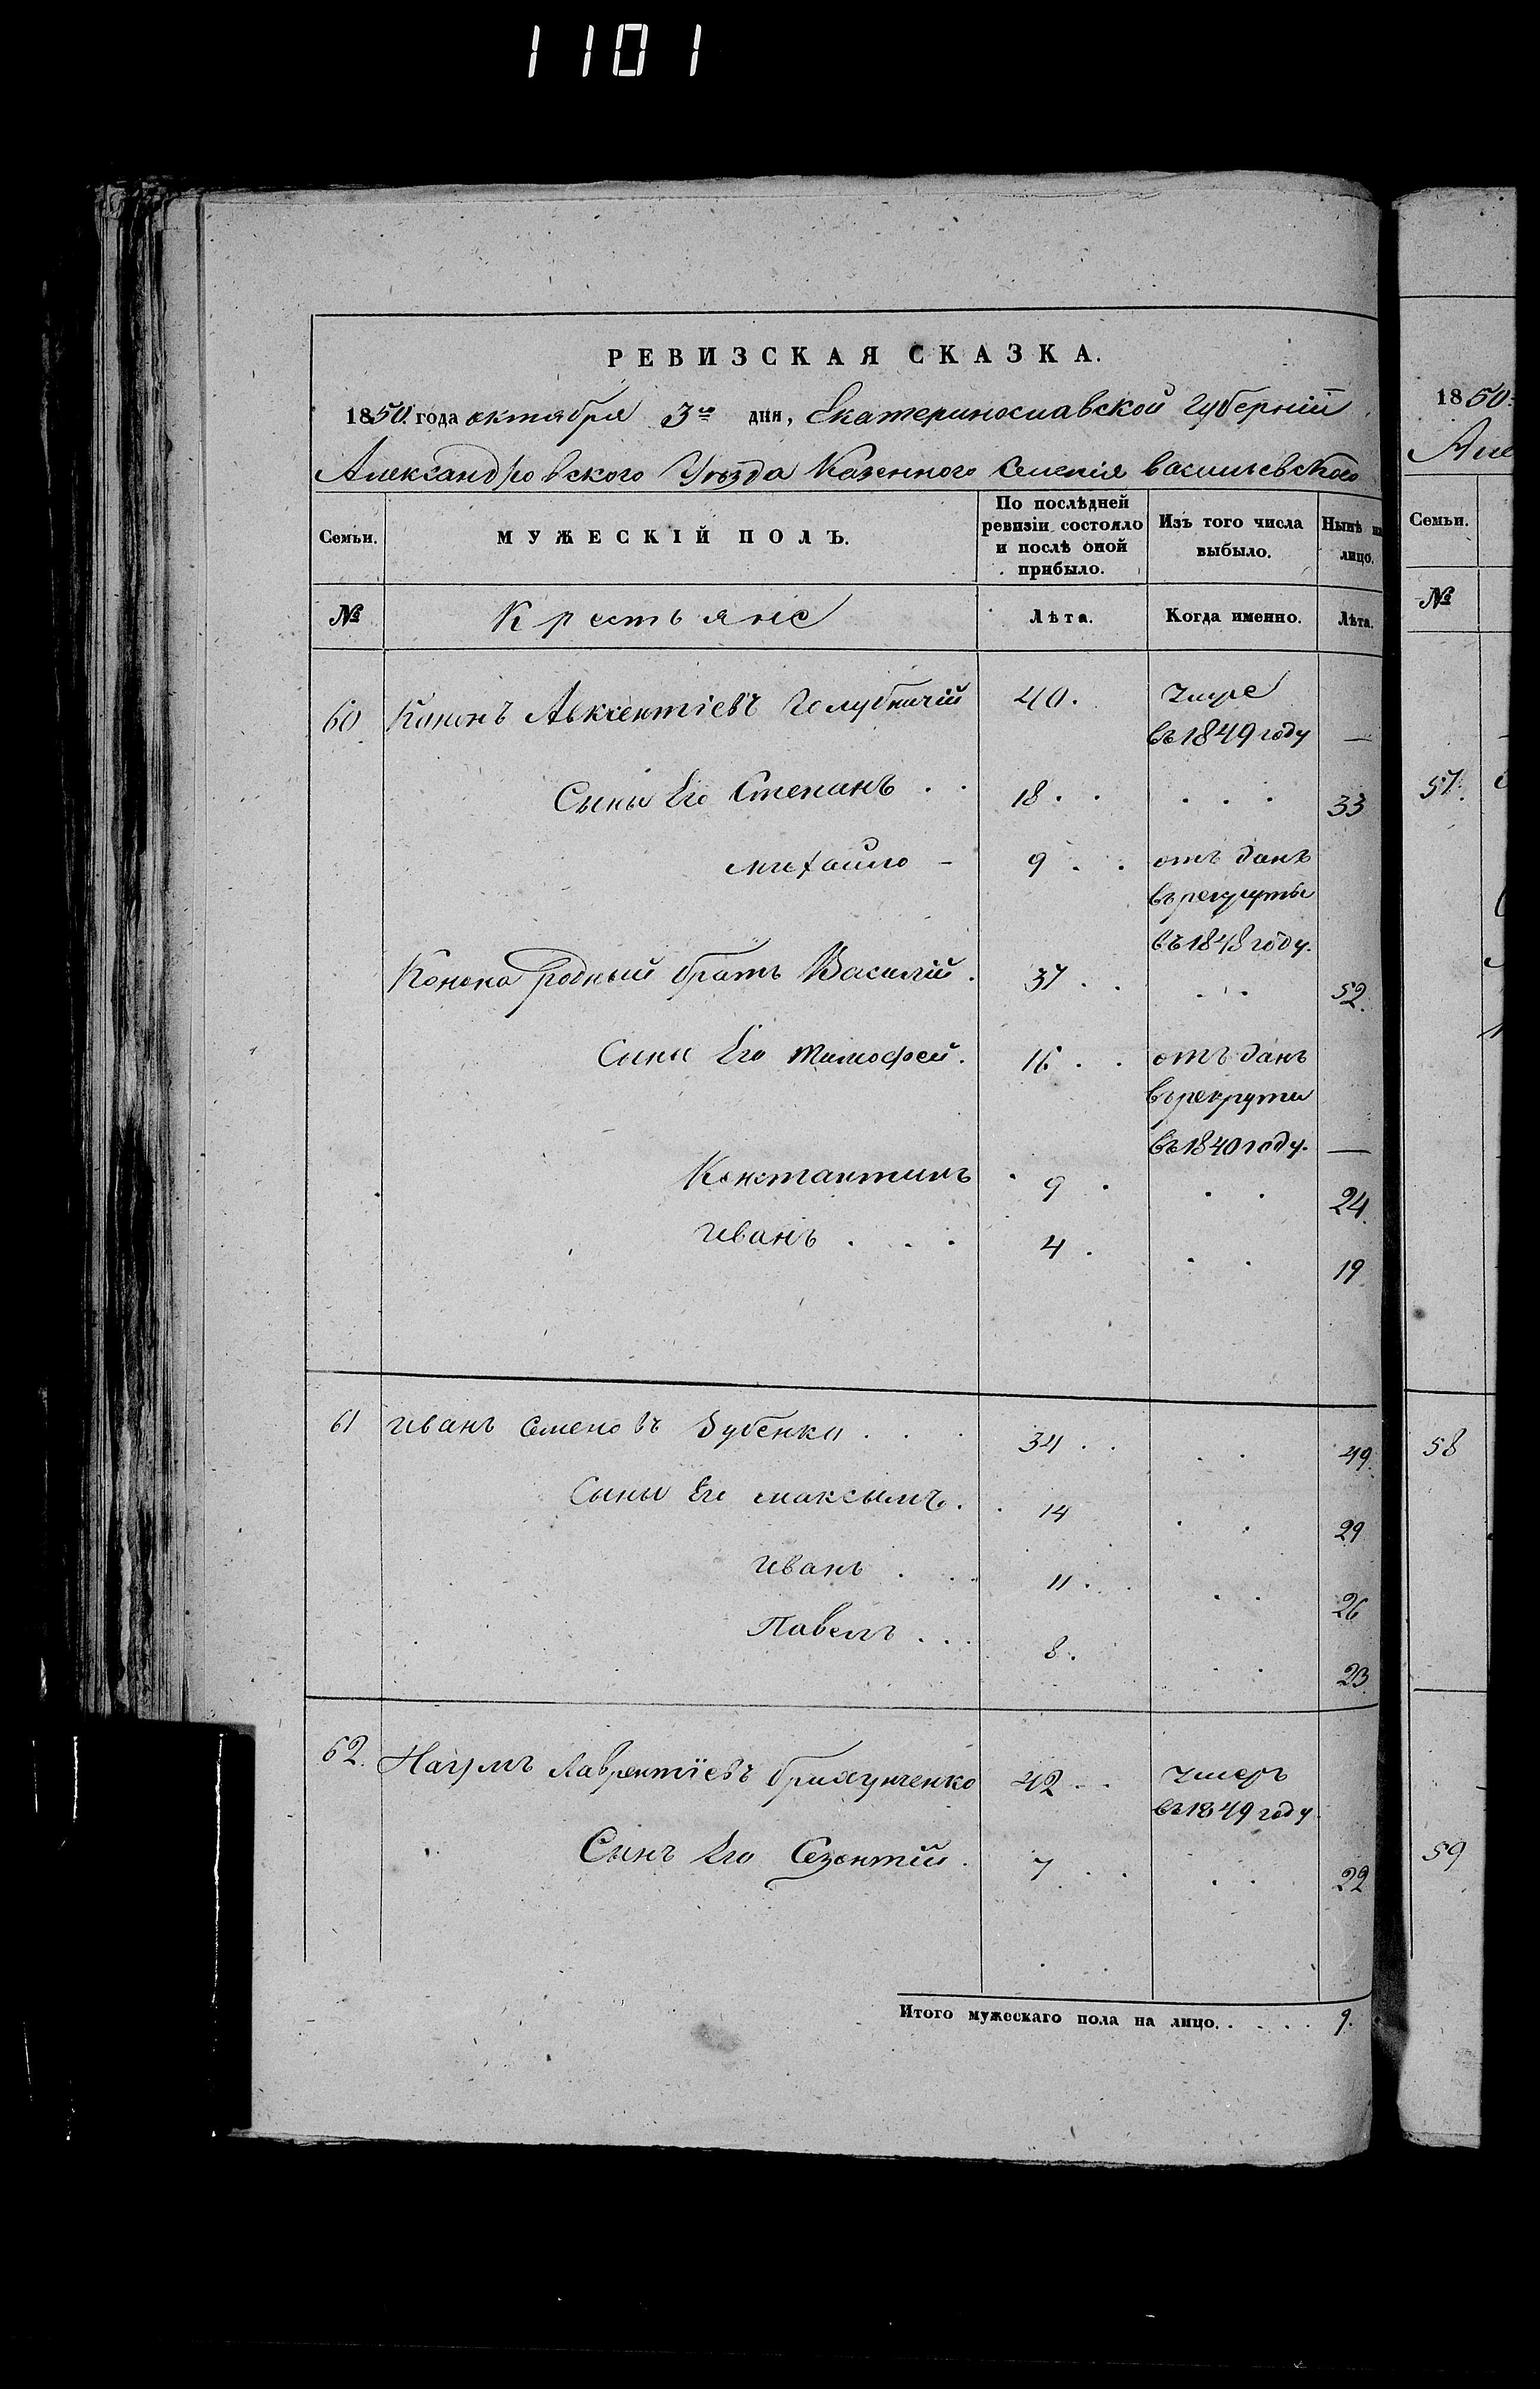 1101
РЕВИЗСКАЯ СКАЗКА.
1850. года октября 3го дня, Екатеринославской Губерніи
Александровского Уѣзда Казенного Селенія Васильевского
Семьи. МУЖЕСКІЙ ПОЛЪ. По послѣдней ревизіи состояло и послѣ оной прибыло. Изъ того числа выбыло. Нынѣ на лицо.
№ Крестьяне Лѣта. Когда именно. Лѣта.
60 Кононъ Авксентіевъ Голубничій 40. умре
въ 1849 году —
Сыны Его Степанъ . . 18 . . . . . 33
михайло - 9 . . отъ данъ
въ рекруты
въ 1848 году.
Конона родный братъ Василій . 37 . . . . . 52.
Сыны Его Тимофей. 16 . . отъ данъ
въ рекруты
въ 1840 году. —
Константинъ . 9 . . . 24.
Иванъ . . . 4 . . . 19
61 Иванъ Семеновъ Зубенко . . . 34 . . . . 49.
Сыны Его максымъ . . 14 . . 29
Иванъ . . . 11 . . . . 26
Павелъ . . . 8 . . . 23.
62. Наумъ Лаврентіевъ 42 . . умеръ
въ 1849 году.
Сынъ Его Созонтій . 7 . . . . 22
Итого мужескаго пола на лицо. . . . . 9.
1850.
Але
Семьи.
№
57.
58
59